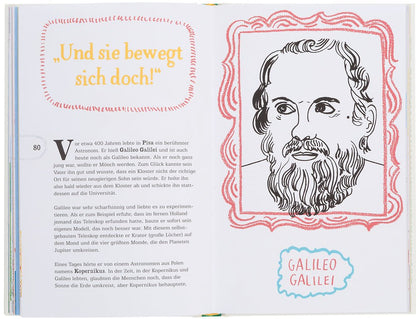 „Und sie bewegt
sich doch!“
80
Vor etwa 400 Jahren lebte in Pisa ein berühmter
Astronom. Er hieß Galileo Galilei und ist auch
heute noch als Galilei bekannt. Als er noch ganz
jung war, wollte er Mönch werden. Zum Glück kannte sein
Vater ihn gut und wusste, dass ein Kloster nicht der richtige
Ort für seinen neugierigen Sohn sein würde. Er holte ihn
also bald wieder aus dem Kloster ab und schickte ihn statt-
dessen auf die Universität.
Galileo war sehr scharfsinnig und liebte es zu experimen-
tieren. Als er zum Beispiel erfuhr, dass im fernen Holland
jemand das Teleskop erfunden hatte, baute er sofort sein
eigenes Modell, das noch besser war. Mit diesem selbst-
gebauten Teleskop entdeckte er Krater (große Löcher) auf
dem Mond und die vier größten Monde, die den Planeten
Jupiter umkreisen.
Eines Tages hörte er von einem Astronomen aus Polen
namens Kopernikus. In der Zeit, in der Kopernikus und
Galilei lebten, glaubten die Menschen noch, dass die
Sonne die Erde umkreist, aber Kopernikus behauptete,
GALILEO
GALILEI